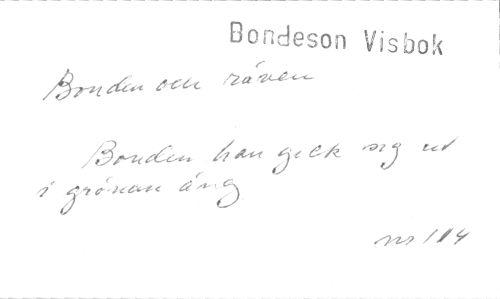 Bondeson Visbok
Bonden och räven
Bonden han gick sig ut
i grönan äng
nr 114